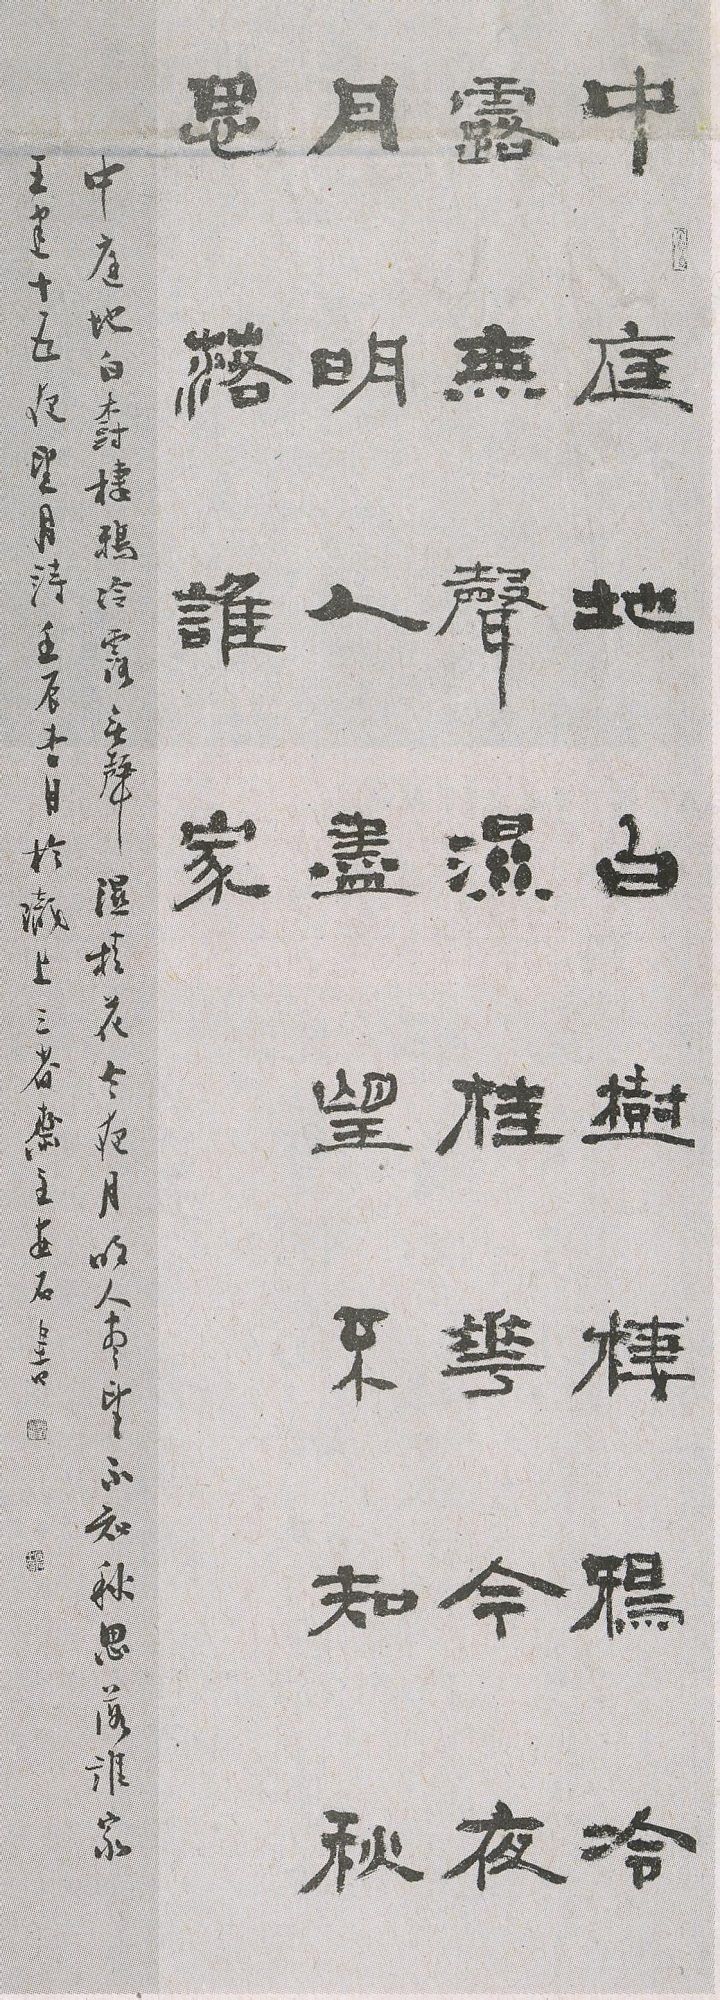 中庭地白樹棲鴉冷
露無聲濕桂華今夜
月明人盡望不知秋
思落誰家
中庭地白樹棲鴉冷露無聲濕桂花今夜月明人盡望不知秋思落誰家
王建十五夜望月詩壬辰杏月於滬上三省齋主並石書